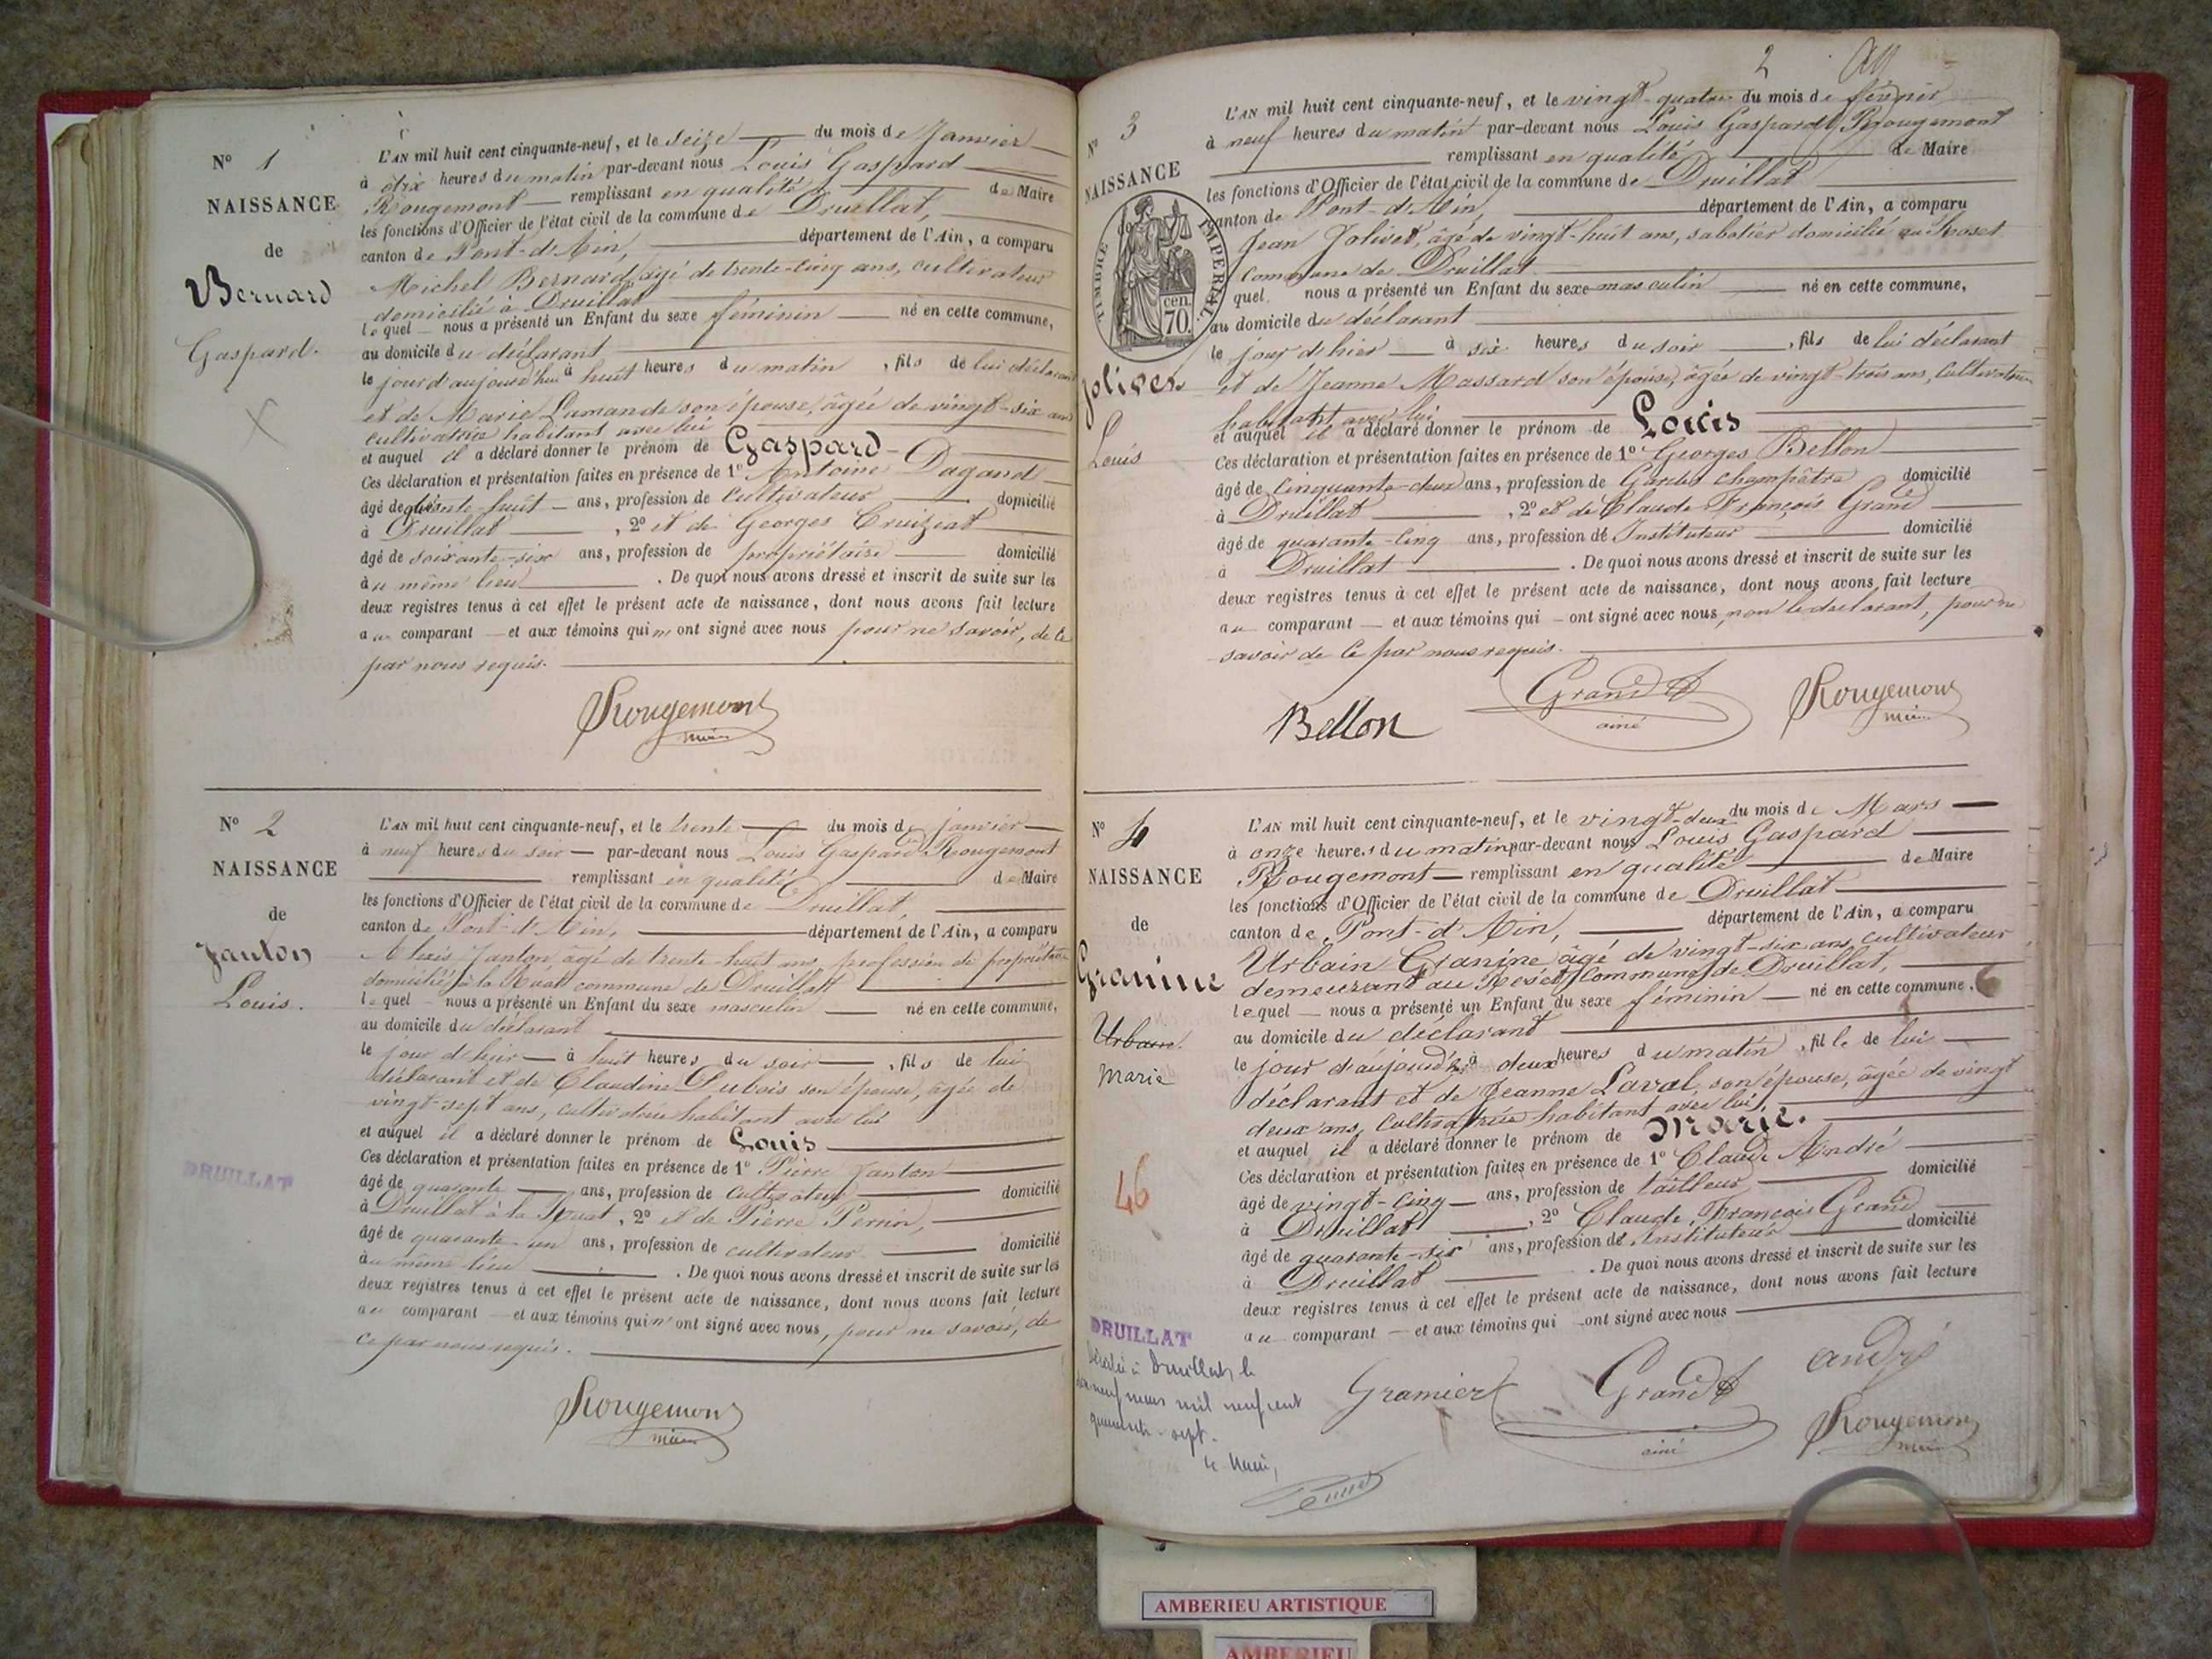 Nº 1
NAISSANCE
de
Bernard
Gaspard.
L'AN mil huit cent cinquante-neuf, et le Seize du mois de Janvier
à dix heures du matin par-devant nous Louis Gaspard
Rougemont remplissant en qualité de Maire
les fonctions d'Officier de l'état civil de la commune de Druillat,
canton de Pont-d'Ain, département de l'Ain, a comparu
Michel Bernard, âgé de trente-cinq ans, cultivateur
domicilié à Druillat
lequel nous a présenté un Enfant du sexe féminin né en cette commune,
au domicile du déclarant
le jour d'aujourd'hui à huit heures du matin, fils de lui déclarant
et de Marie Lamande son épouse, âgée de vingt-six ans
cultivatrice habitant avec lui
et auquel il a déclaré donner le prénom de Gaspard
Ces déclaration et présentation faites en présence de 1º Antoine Dagand
âgé de huit ans, profession de Cultivateur domicilié
à Druillat, 2º et de Georges Cruizeat
âgé de soixante-six ans, profession de propriétaire domicilié
au même lieu. De quoi nous avons dressé et inscrit de suite sur les
deux registres tenus à cet effet le présent acte de naissance, dont nous avons fait lecture
au comparant et aux témoins qui n'ont signé avec nous pour ne savoir, de ce
par nous requis.
Rougemont
maire
Nº 2
NAISSANCE
de
Janton
Louis.
DRUILLAT
L'AN mil huit cent cinquante-neuf, et le trente du mois de janvier
à neuf heures du soir par-devant nous Louis Gaspard Rougemont
remplissant en qualité de Maire
les fonctions d'Officier de l'état civil de la commune de Druillat,
canton de Pont-d'Ain, département de l'Ain, a comparu
Alexis Janton, âgé de trente-huit ans, profession de propriétaire
domicilié à la commune de Druillat
lequel nous a présenté un Enfant du sexe masculin né en cette commune,
au domicile du déclarant
le jour d'hier à huit heures du soir, fils de lui
déclarant et de Claudine Dubois son épouse, âgée de
vingt-sept ans, cultivatrice habitant avec lui
et auquel il a déclaré donner le prénom de Louis
Ces déclaration et présentation faites en présence de 1º Pierre Janton
âgé de quarante ans, profession de cultivateur domicilié
à Druillat à la, 2º et de Pierre Perrin,
âgé de quarante-un ans, profession de cultivateur domicilié
au même lieu. De quoi nous avons dressé et inscrit de suite sur les
deux registres tenus à cet effet le présent acte de naissance, dont nous avons fait lecture
au comparant et aux témoins qui n'ont signé avec nous, pour ne savoir, de
ce par nous requis.
Rougemont
maire
2
Nº 3
NAISSANCE
de
TIMBRE IMPERIAL
cen.
70.
Jolivet
Louis
L'AN mil huit cent cinquante-neuf, et le vingt-quatre du mois de février
à neuf heures du matin par-devant nous Louis Gaspard Rougemont
remplissant en qualité de Maire
les fonctions d'Officier de l'état civil de la commune de Druillat
canton de Pont-d'Ain, département de l'Ain, a comparu
Jean Jolivet, âgé de vingt-huit ans, sabotier domicilié au Roset
commune de Druillat
quel nous a présenté un Enfant du sexe masculin né en cette commune,
au domicile du déclarant
le jour d'hier à six heures du soir, fils de lui déclarant
et de Jeanne Massard son épouse, âgée de vingt-trois ans, cultivatrice
habitant avec lui
et auquel il a déclaré donner le prénom de Louis
Ces déclaration et présentation faites en présence de 1º Georges Bellon
âgé de cinquante-deux ans, profession de Garde champêtre domicilié
à Druillat, 2º et de Claude François Grand
âgé de quarante-cinq ans, profession de Instituteur domicilié
à Druillat. De quoi nous avons dressé et inscrit de suite sur les
deux registres tenus à cet effet le présent acte de naissance, dont nous avons fait lecture
au comparant et aux témoins qui ont signé avec nous, non le déclarant, pour ne
savoir de ce par nous requis.
Bellon Grand aîné Rougemont maire
Nº 4
NAISSANCE
de
Granine
Urbain.
Marie
46
DRUILLAT
Décédée à Druillat le
neuf mars mil neuf cent
quarante-sept.
le Maire,
L'AN mil huit cent cinquante-neuf, et le vingt-deux du mois de Mars
à onze heures du matin par-devant nous Louis Gaspard
Rougemont remplissant en qualité de Maire
les fonctions d'Officier de l'état civil de la commune de Druillat
canton de Pont-d'Ain, département de l'Ain, a comparu
Urbain Granine âgé de vingt-six ans, cultivateur
demeurant au Roset commune de Druillat,
lequel nous a présenté un Enfant du sexe féminin né en cette commune,
au domicile du déclarant
le jour d'aujourd'hui à deux heures du matin, fille de lui
déclarant et de Jeanne Laval, son épouse, âgée de vingt
deux ans, cultivatrice habitant avec lui,
et auquel il a déclaré donner le prénom de Marie.
Ces déclaration et présentation faites en présence de 1º Claude André
âgé de vingt-cinq ans, profession de tailleur domicilié
à Druillat, 2º Claude, François Grand
âgé de quarante-six ans, profession de Instituteur domicilié
à Druillat. De quoi nous avons dressé et inscrit de suite sur les
deux registres tenus à cet effet le présent acte de naissance, dont nous avons fait lecture
au comparant et aux témoins qui ont signé avec nous
Granier Grand aîné André
Rougemont
maire
AMBERIEU ARTISTIQUE
AMBERIEU